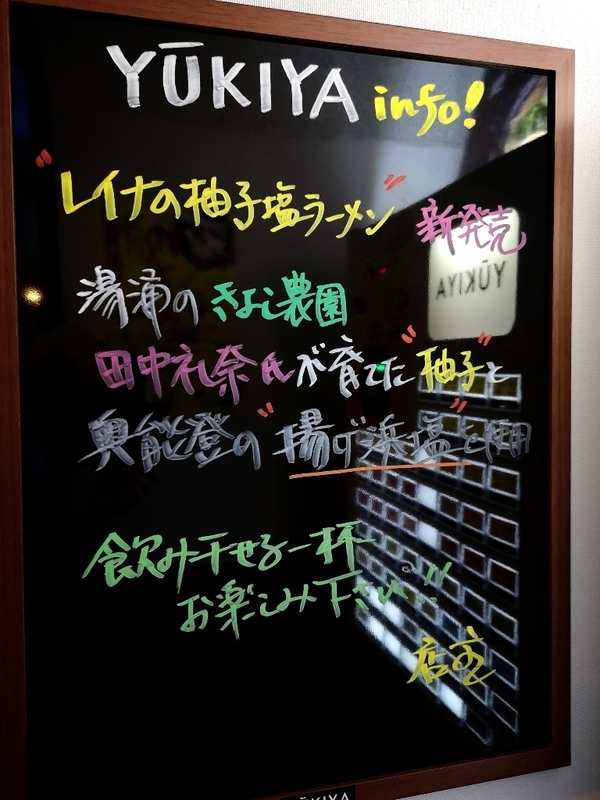 YŪKIYA info!
"レイナの柚子塩ラーメン" 新発売
湯涌の きよし農園
田中礼奈氏が育てた"柚子"と
奥能登の"揚げ浜塩"を使用
飲み干せる一杯
お楽しみ下さい!!
店主
YŪKIYA
YŪKIYA